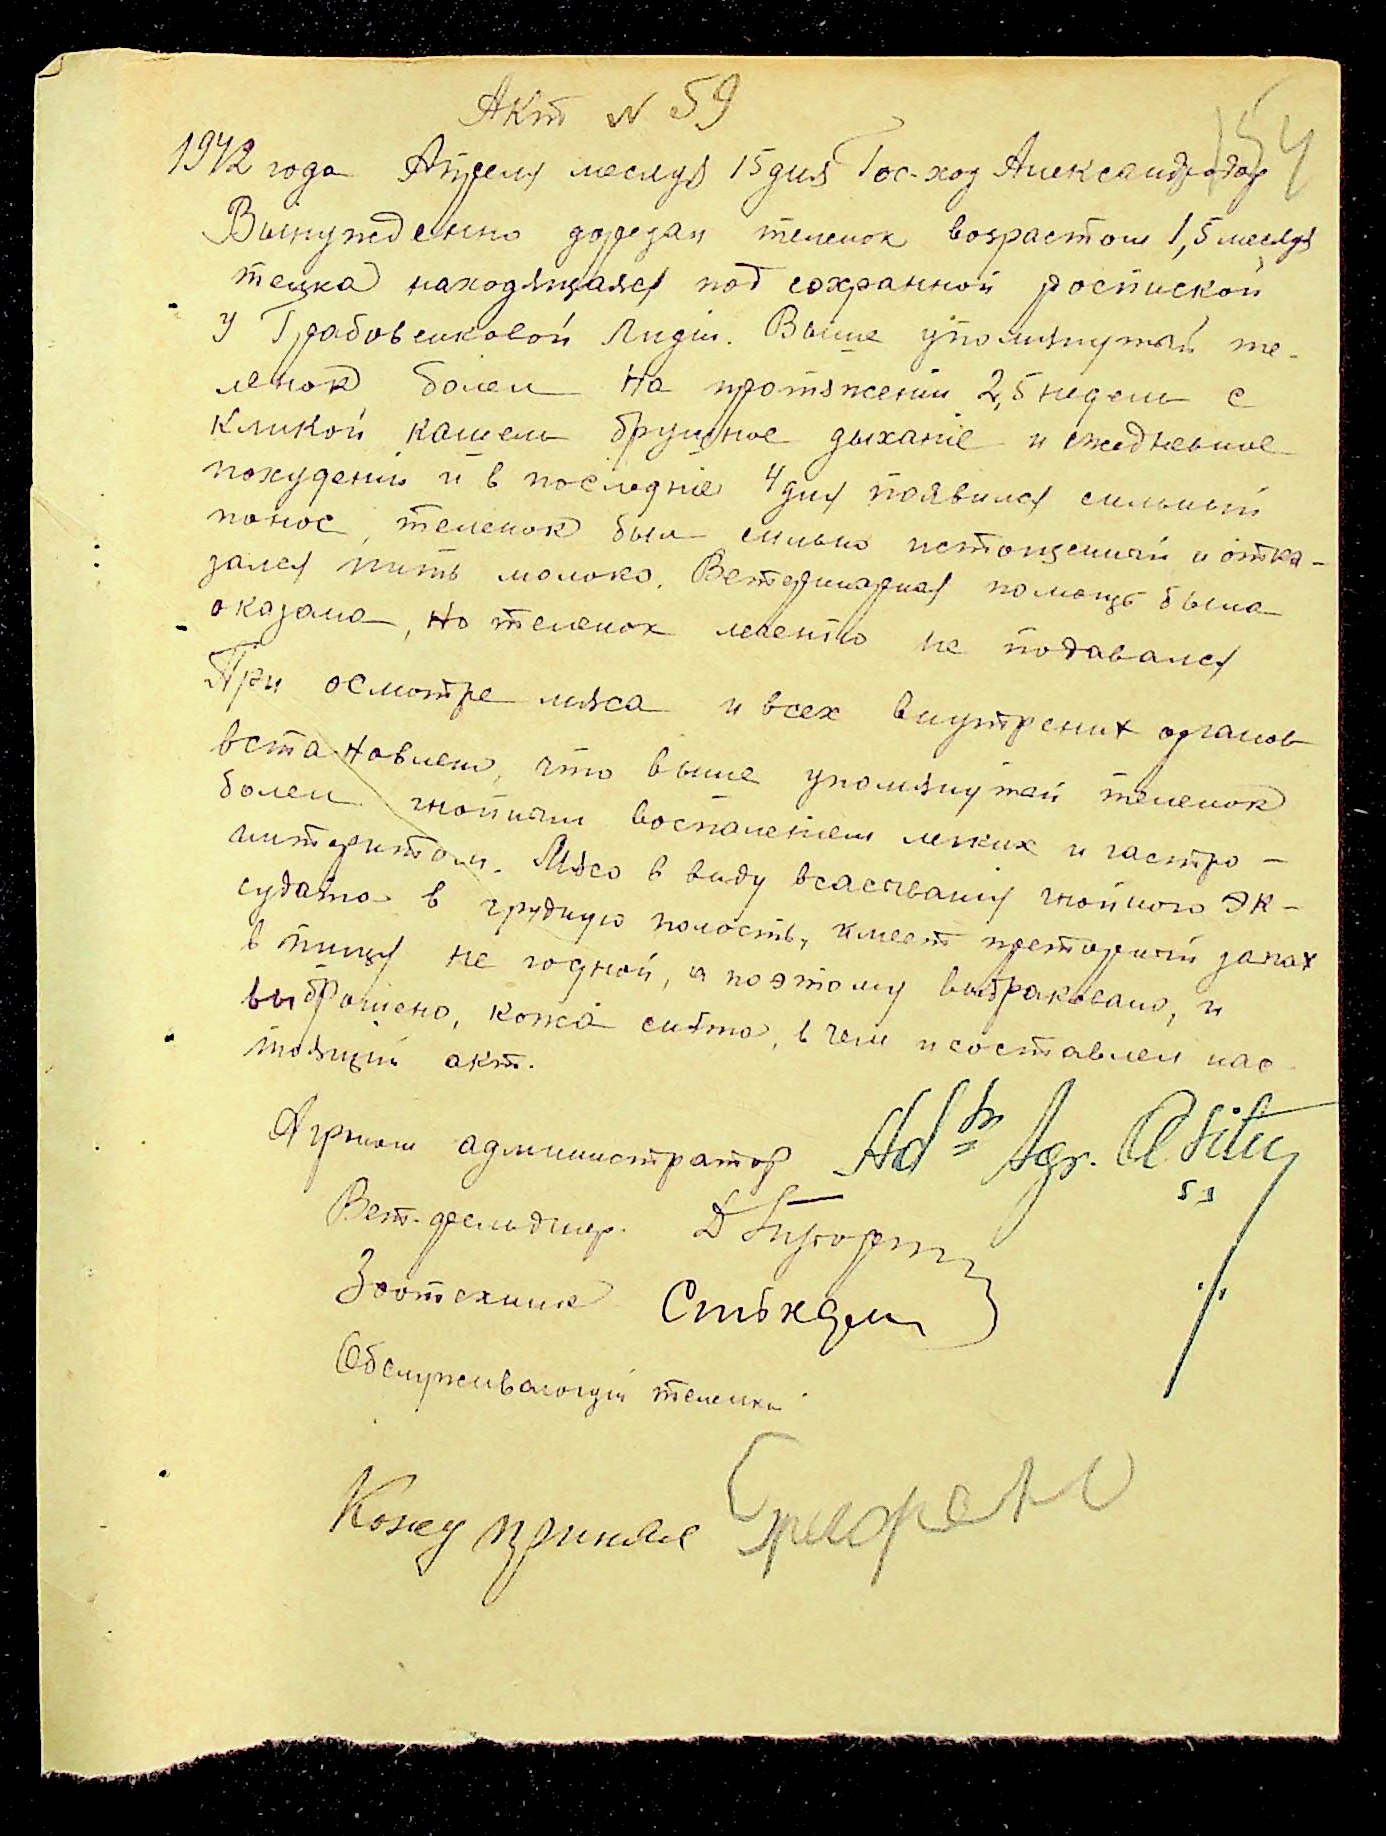 Акт № 59
154
1942 года Апреля месяця 15 дня Гос-ход Александродар
Вынужденно дорезан теленок возрастом 1,5 месяця
телка находящаяся под сохранной роспиской
у Грабовенковой Лидіи. Выше упомянутый те-
ленок болел на протяжении 2,5 недели с
кликой кашель брушное дыханіе и ежедневное
похудении и в последніе 4 дня появился сильный
понос, теленок был сильно истощенный и отка-
зался пить молоко. Ветеринарная помощь была
оказана, но теленок леченію не подавался
При осмотре мяса и всех внутрених органов
встановлено, что выше упомянутый теленок
болел гнойным воспаленіем легких и гастро-
интеритом. Мясо в виду всасывания гнойного эк-
судата в грудную полость, имеет преторный запах
в пищу не годной, а поэтому выбраковано, и
выброшено, кожа снята, в чем и составлен нас-
тоящий акт.
Агроном администратор Ad-tr Agr.
Вет. фельдшер. Д
Зоотехник
Обслуживающій теленки
Кожу принял